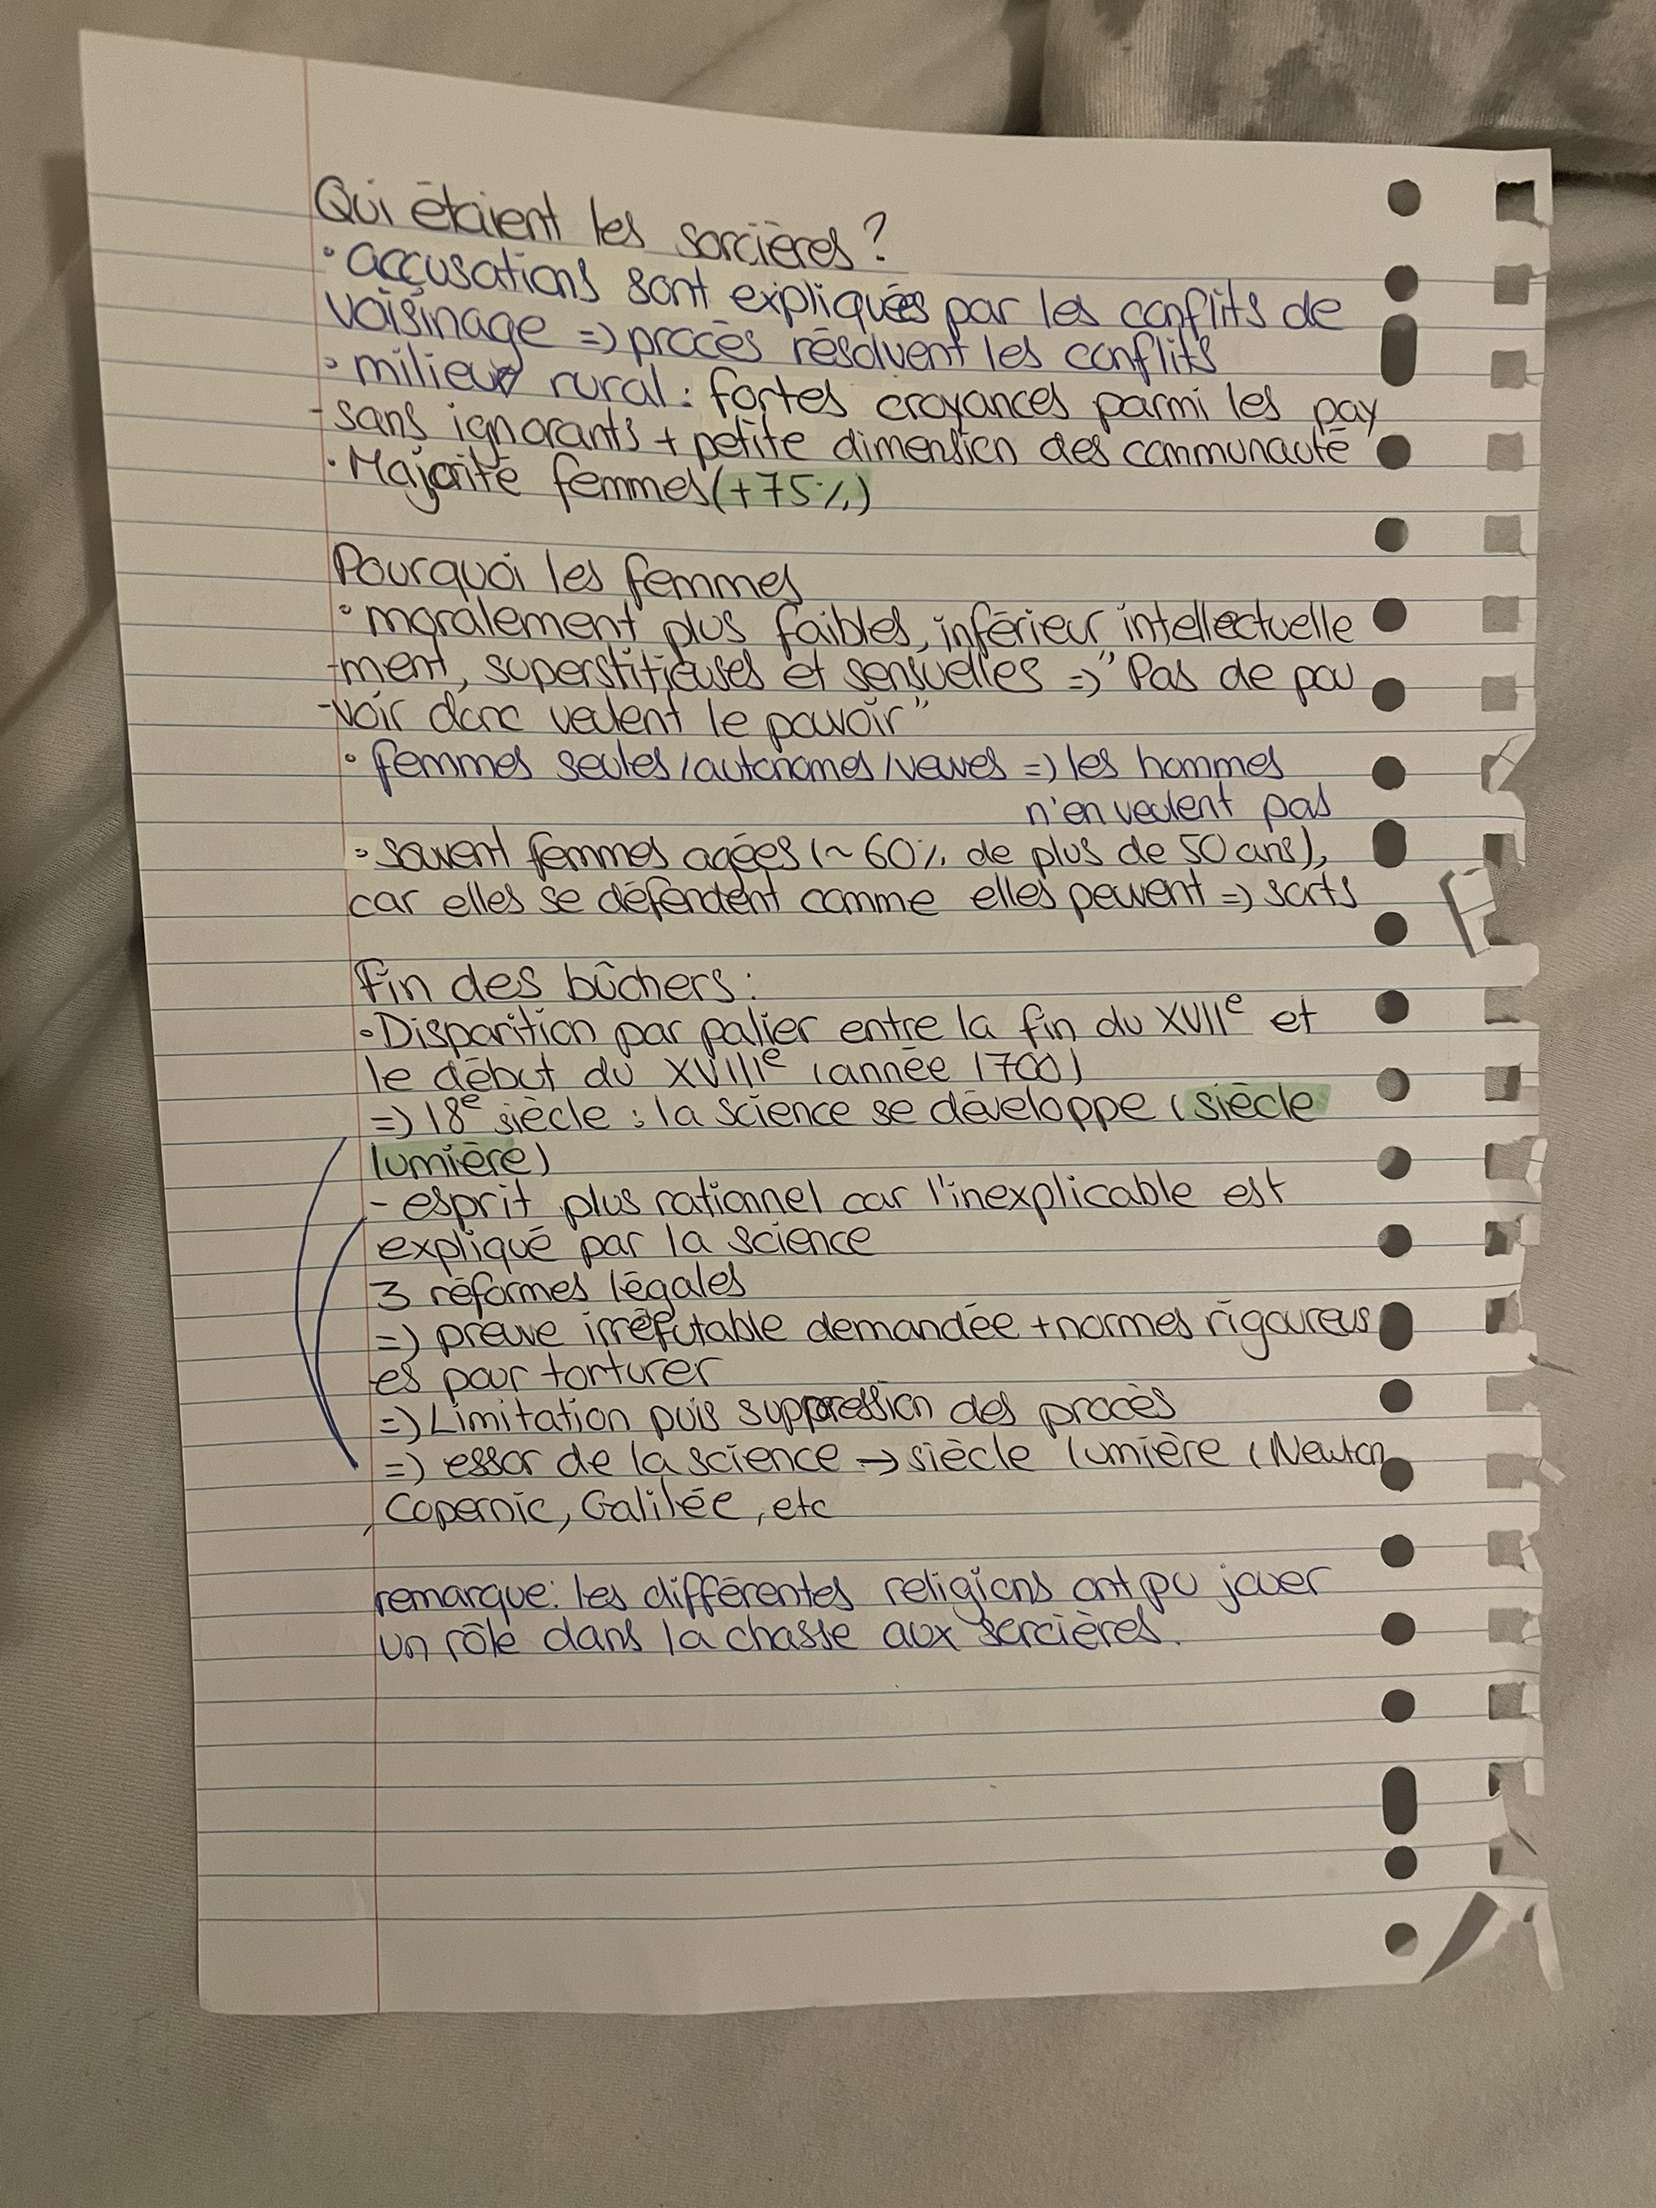 Qui étaient les sorcières?
• accusations sont expliquées par les conflits de
voisinage => procès résolvent les conflits
• milieu rural : fortes croyances parmi les pay
-sans ignorants + petite dimension des communauté
• Majorité femmes (+75%)
Pourquoi les femmes
• moralement plus faibles, inférieur intellectuelle
-ment, superstitieuses et sensuelles => "Pas de pou
-voir donc veulent le pouvoir"
• femmes seules/autonomes/veuves => les hommes
n'en veulent pas
• souvent femmes agées (~60% de plus de 50 ans),
car elles se défendent comme elles peuvent => sorts
Fin des bûchers :
• Disparition par palier entre la fin du XVIIe et
le début du XVIIIe (année 1700)
=> 18e siècle : la science se développe (siècle
lumière)
- esprit plus rationnel car l'inexplicable est
expliqué par la science
3 réformes légales
=> preuve irréfutable demandée + normes rigoureus
es pour torturer
=> Limitation puis suppression des procès
=> essor de la science → siècle lumière (Newton
, Copernic, Galilée, etc
remarque: les différentes religions ont pu jouer
un rôle dans la chasse aux sorcières.